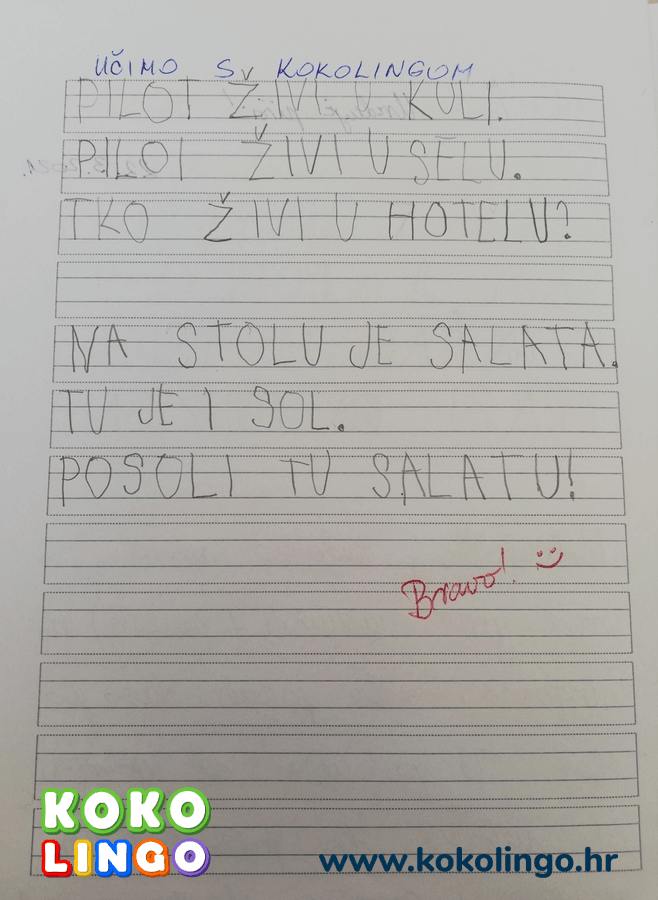 UČIMO S KOKOLINGOM
PILOT ŽIVI U KULI.
PILOT ŽIVI U SELU.
TKO ŽIVI U HOTELU?
NA STOLU JE SALATA.
TU JE I SOL.
POSOLI TU SALATU!
Bravo!
KOKO
LINGO
www.kokolingo.hr